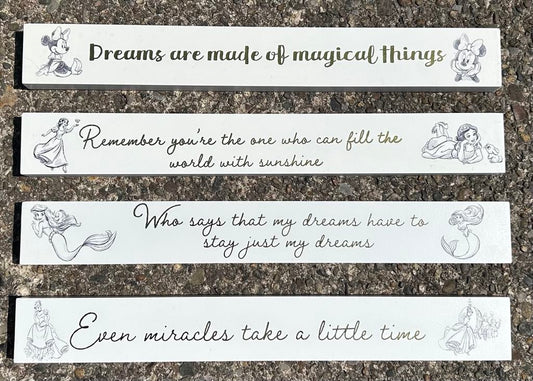 Dreams are made of magical things
Remember you're the one who can fill the
world with sunshine
Who says that my dreams have to
stay just my dreams
Even miracles take a little time